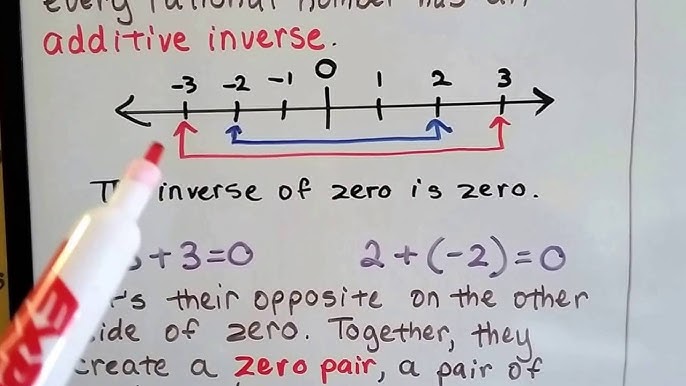 every rational number has an
additive inverse.
-3 -2 -1 0 1 2 3
inverse of zero is zero.
3+3=0 2+(-2)=0
their opposite on the other
side of zero. Together, they
create a zero pair, a pair of
EXP